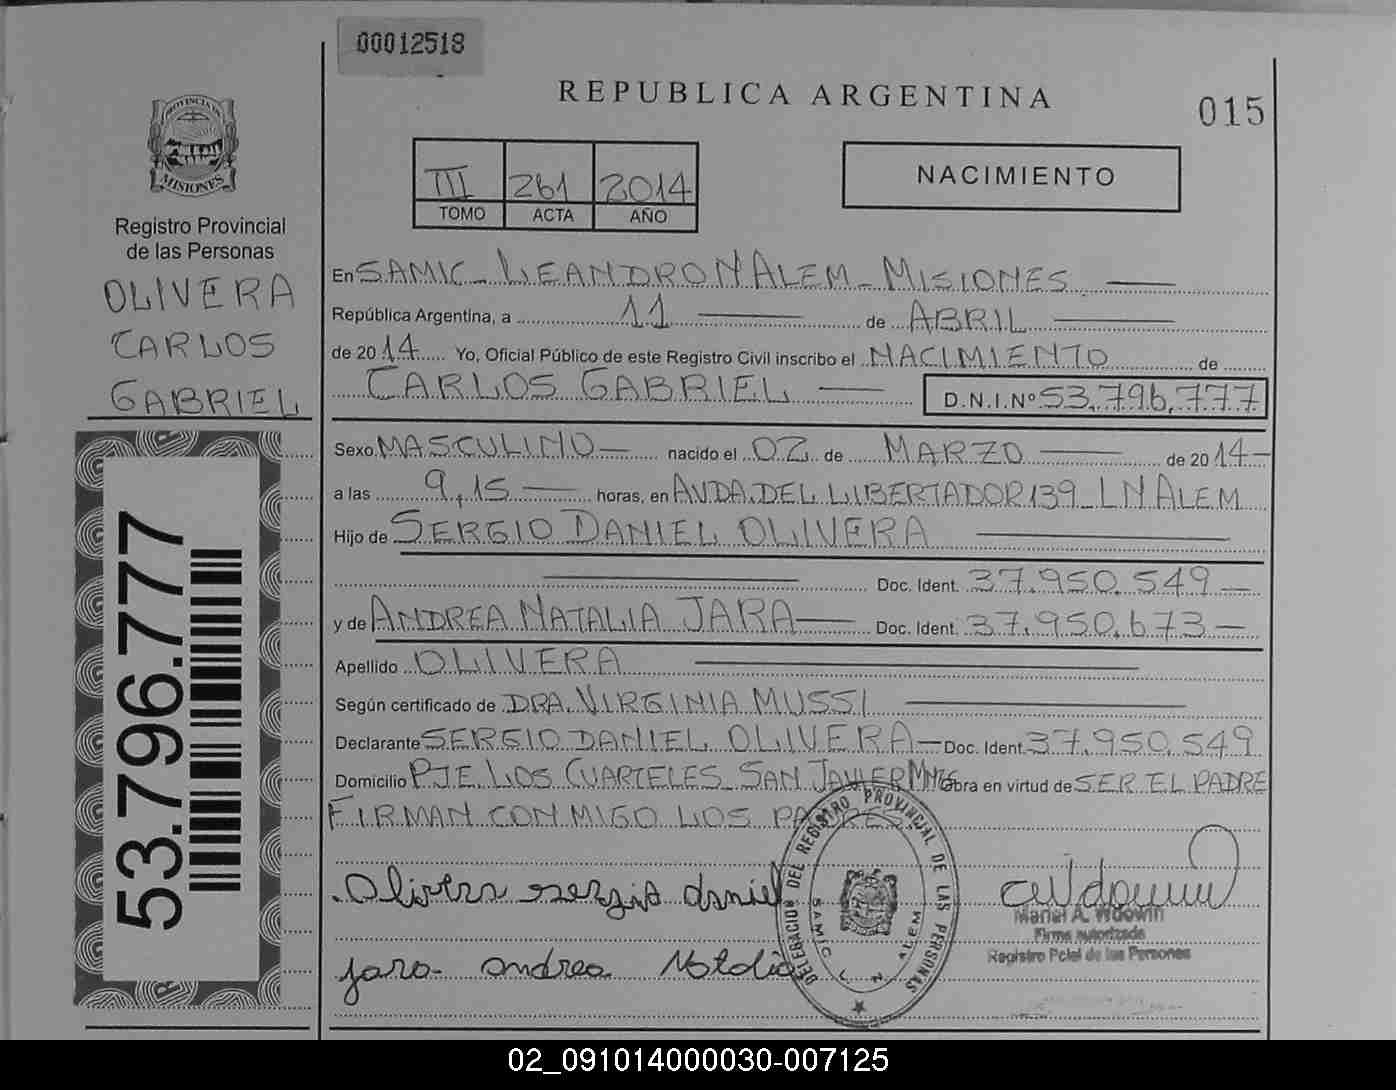 00012518
REPUBLICA ARGENTINA
015
PROVINCIA DE
MISIONES
Registro Provincial
de las Personas
OLIVERA
CARLOS
GABRIEL
53.796.777
III 261 2014
TOMO ACTA AÑO
NACIMIENTO
En SAMIC - LEANDRO N ALEM - MISIONES
República Argentina, a 11 de ABRIL
de 2014 Yo, Oficial Público de este Registro Civil inscribo el NACIMIENTO de
CARLOS GABRIEL D.N.I.Nº 53.796.777
Sexo MASCULINO nacido el 02 de MARZO de 2014
a las 9,15 horas, en AVDA. DEL LIBERTADOR 139 - L N ALEM
Hijo de SERGIO DANIEL OLIVERA
Doc. Ident. 37.950.549
y de ANDREA NATALIA JARA Doc. Ident. 37.950.673
Apellido OLIVERA
Según certificado de DRA. VIRGINIA MUSSI
Declarante SERGIO DANIEL OLIVERA Doc. Ident. 37.950.549
Domicilio PJE. LOS CUARTELES - SAN JAVIER Mnes Obra en virtud de SER EL PADRE
FIRMAN CON MIGO LOS PADRES.
Olivera sergio daniel
Jara andrea Natalia
DELEGACION DEL REGISTRO PROVINCIAL DE LAS PERSONAS
SAMIC L N ALEM
Mariel A. Wdowin
Firma autorizada
Registro Pcial de las Personas
02_091014000030-007125